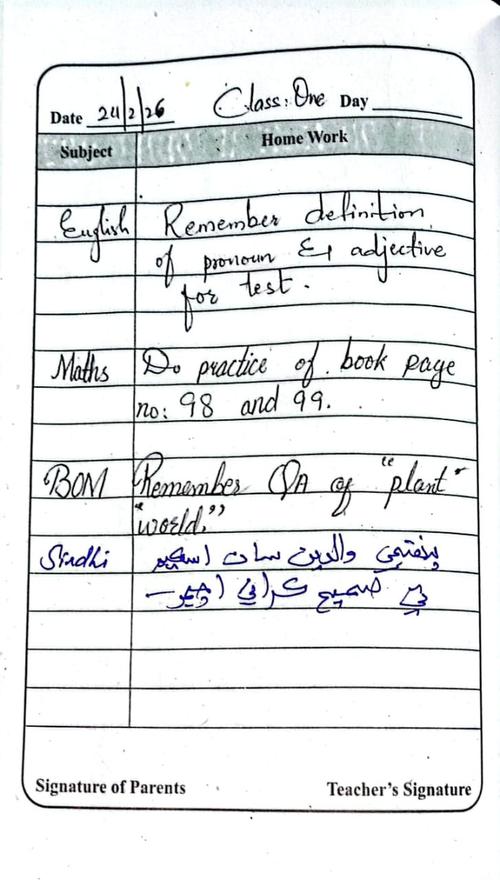 Date 24/2/26 Class: One Day
Subject Home Work
English Remember definition
of pronoun & adjective
for test.
Maths Do practice of book page
no: 98 and 99.
BOM Remember QA of "plant"
"world."
Sindhi والدين سان
صحيح ڪرائي اچو—
Signature of Parents Teacher's Signature